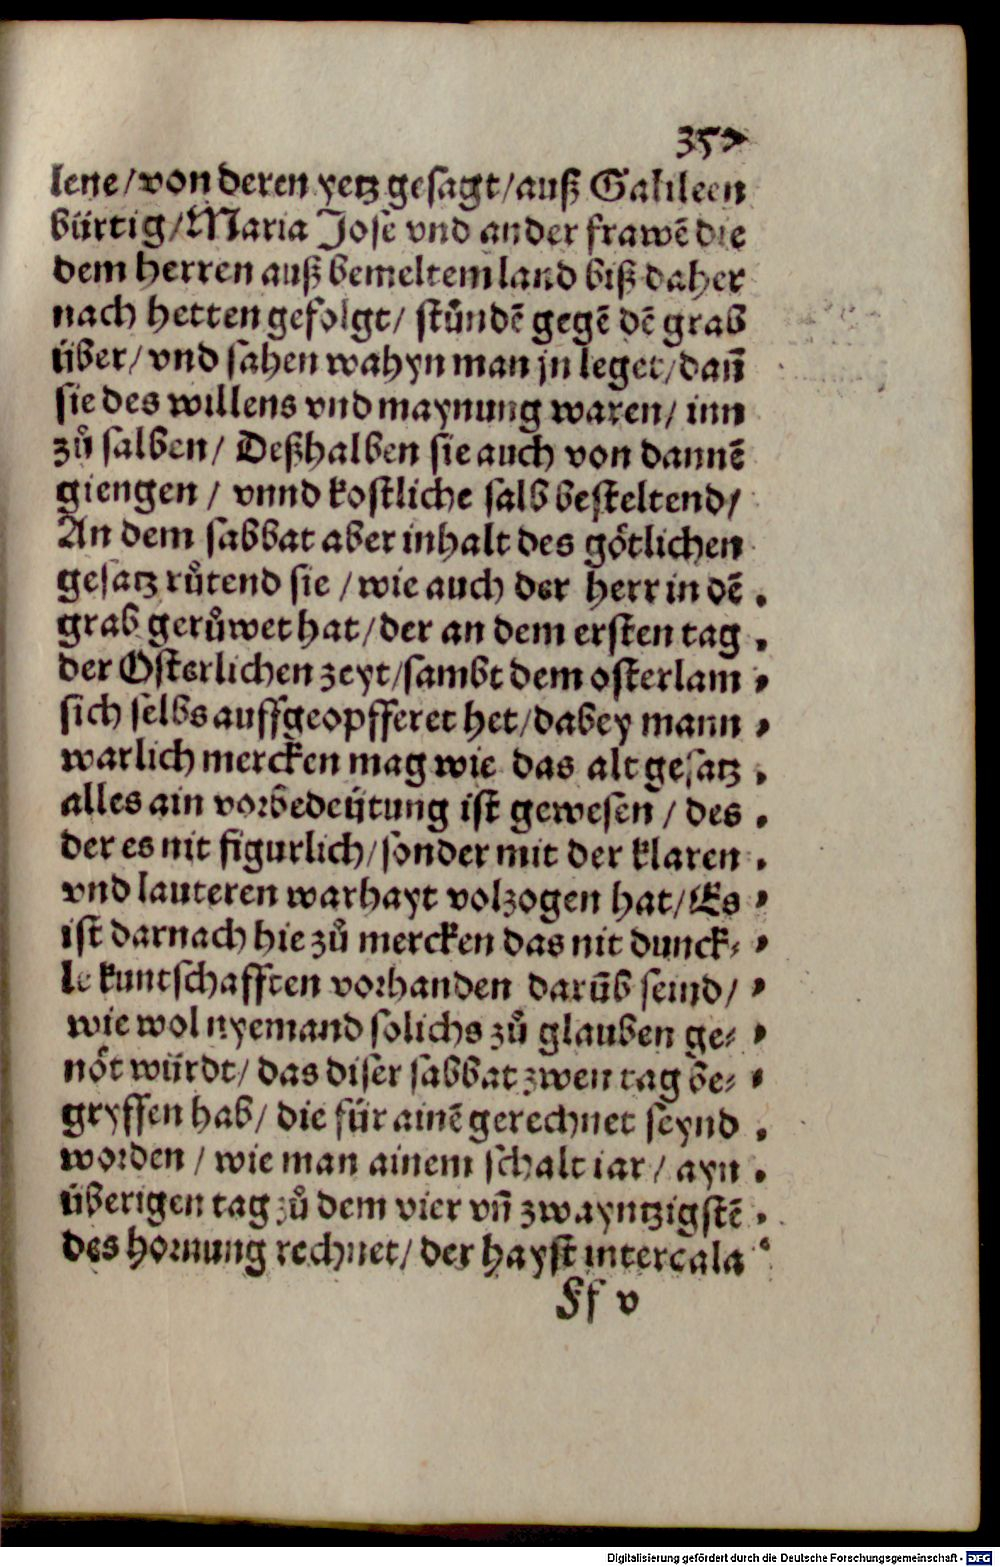 357
lene/von deren yetz gesagt/auß Galileen
bürtig/Maria Jose vnd ander frawē die
dem herren auß bemeltem land biß daher
nach hetten gefolgt/ stůndē gegē dē grab
über/ vnd sahen wahyn man jn leget/dañ
sie des willens vnd maynung waren/ inn
zů salben/ Deßhalben sie auch von dannē
giengen / vnnd kostliche salb besteltend/
An dem sabbat aber inhalt des götlichen
gesatz růtend sie /wie auch der herr in dē
grab gerůwet hat/der an dem ersten tag
der Osterlichen zeyt/sambt dem osterlam
sich selbs auffgeopfferet het/dabey mann
warlich mercken mag wie das alt gesatz
alles ain vorbedeütung ist gewesen / des
der es nit figurlich/sonder mit der klaren
vnd lauteren warhayt volzogen hat/Es
ist darnach hie zů mercken das nit dunck-
le kuntschafften vorhanden darūb seind/
wie wol nyemand solichs zů glauben ge-
nöt würdt/ das diser sabbat zwen tag be-
gryffen hab/ die für ainē gerechnet seynd
worden / wie man ainem schalt iar / ayn
überigen tag zů dem vier vñ zwayntzigstē
des hornung rechnet/ der hayst intercala
Ff v
Digitalisierung gefördert durch die Deutsche Forschungsgemeinschaft - DFG